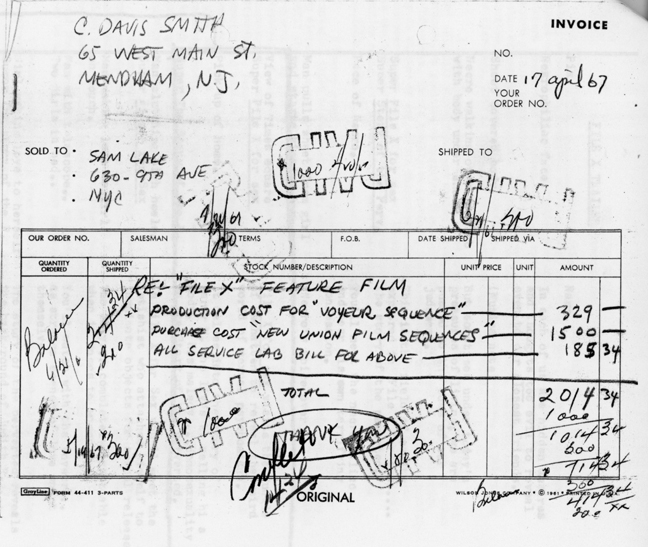 C. DAVIS SMITH
65 WEST MAIN ST.
MENDHAM, N.J.
INVOICE
NO.
DATE 17 april 67
YOUR
ORDER NO.
SOLD TO
SAM LAKE
630-9TH AVE
NYC
SHIPPED TO
PAID
1000
PAID
PAID
OUR ORDER NO. SALESMAN TERMS F.O.B. DATE SHIPPED SHIPPED VIA
QUANTITY ORDERED QUANTITY SHIPPED STOCK NUMBER/DESCRIPTION UNIT PRICE UNIT AMOUNT
RE: "FILE X" FEATURE FILM
PRODUCTION COST FOR "VOYEUR SEQUENCE" — 329 —
PURCHASE COST "NEW UNION FILM SEQUENCES" — 1500 —
ALL SERVICE LAB BILL FOR ABOVE — 185 34
TOTAL 2014 34
1000
1014 34
PAID
1000
THANK YOU
PAID
714 34
300
414 34
ORIGINAL
GrayLine FORM 44-411 3-PARTS
WILSON JONES COMPANY • © 1961 • PRINTED